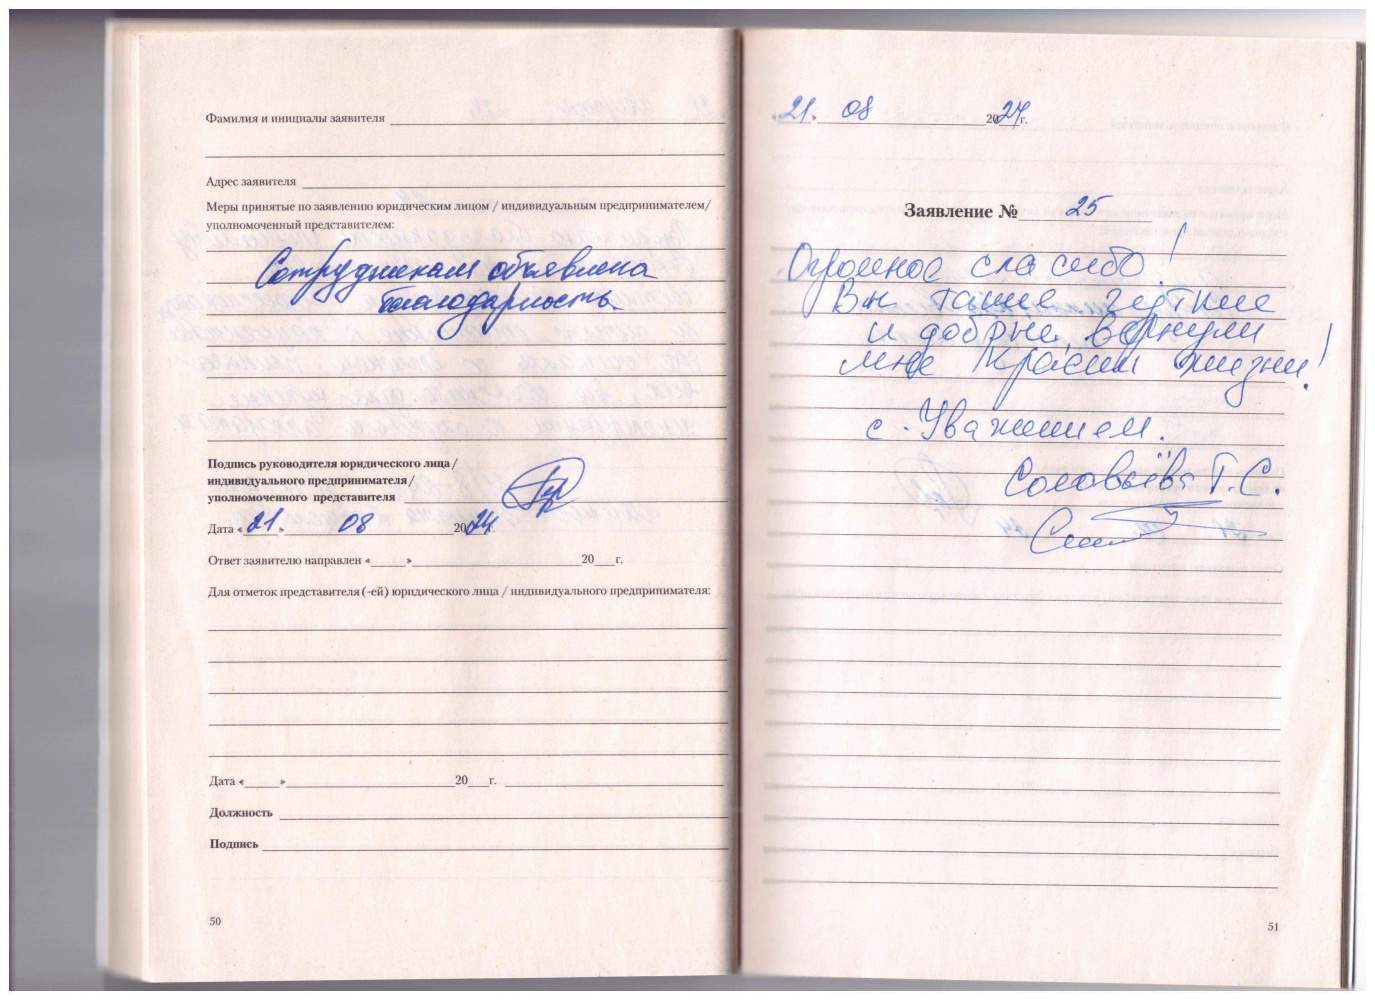 Фамилия и инициалы заявителя
Адрес заявителя
Меры принятые по заявлению юридическим лицом / индивидуальным предпринимателем/
уполномоченный представителем:
Сотрудникам объявлена
благодарность.
Подпись руководителя юридического лица/
индивидуального предпринимателя/
уполномоченного представителя
Дата «21» 08 2024г.
Ответ заявителю направлен «     » 20   г.
Для отметок представителя (-ей) юридического лица / индивидуального предпринимателя:
Дата «     » 20   г.
Должность
Подпись
50
«21» 08 2024г.
Заявление № 25
Огромное спасибо!
Вы такие чуткие
и добрые, вернули
мне краски жизни!
с. Уважением.
Соловьёва Т. С.
51